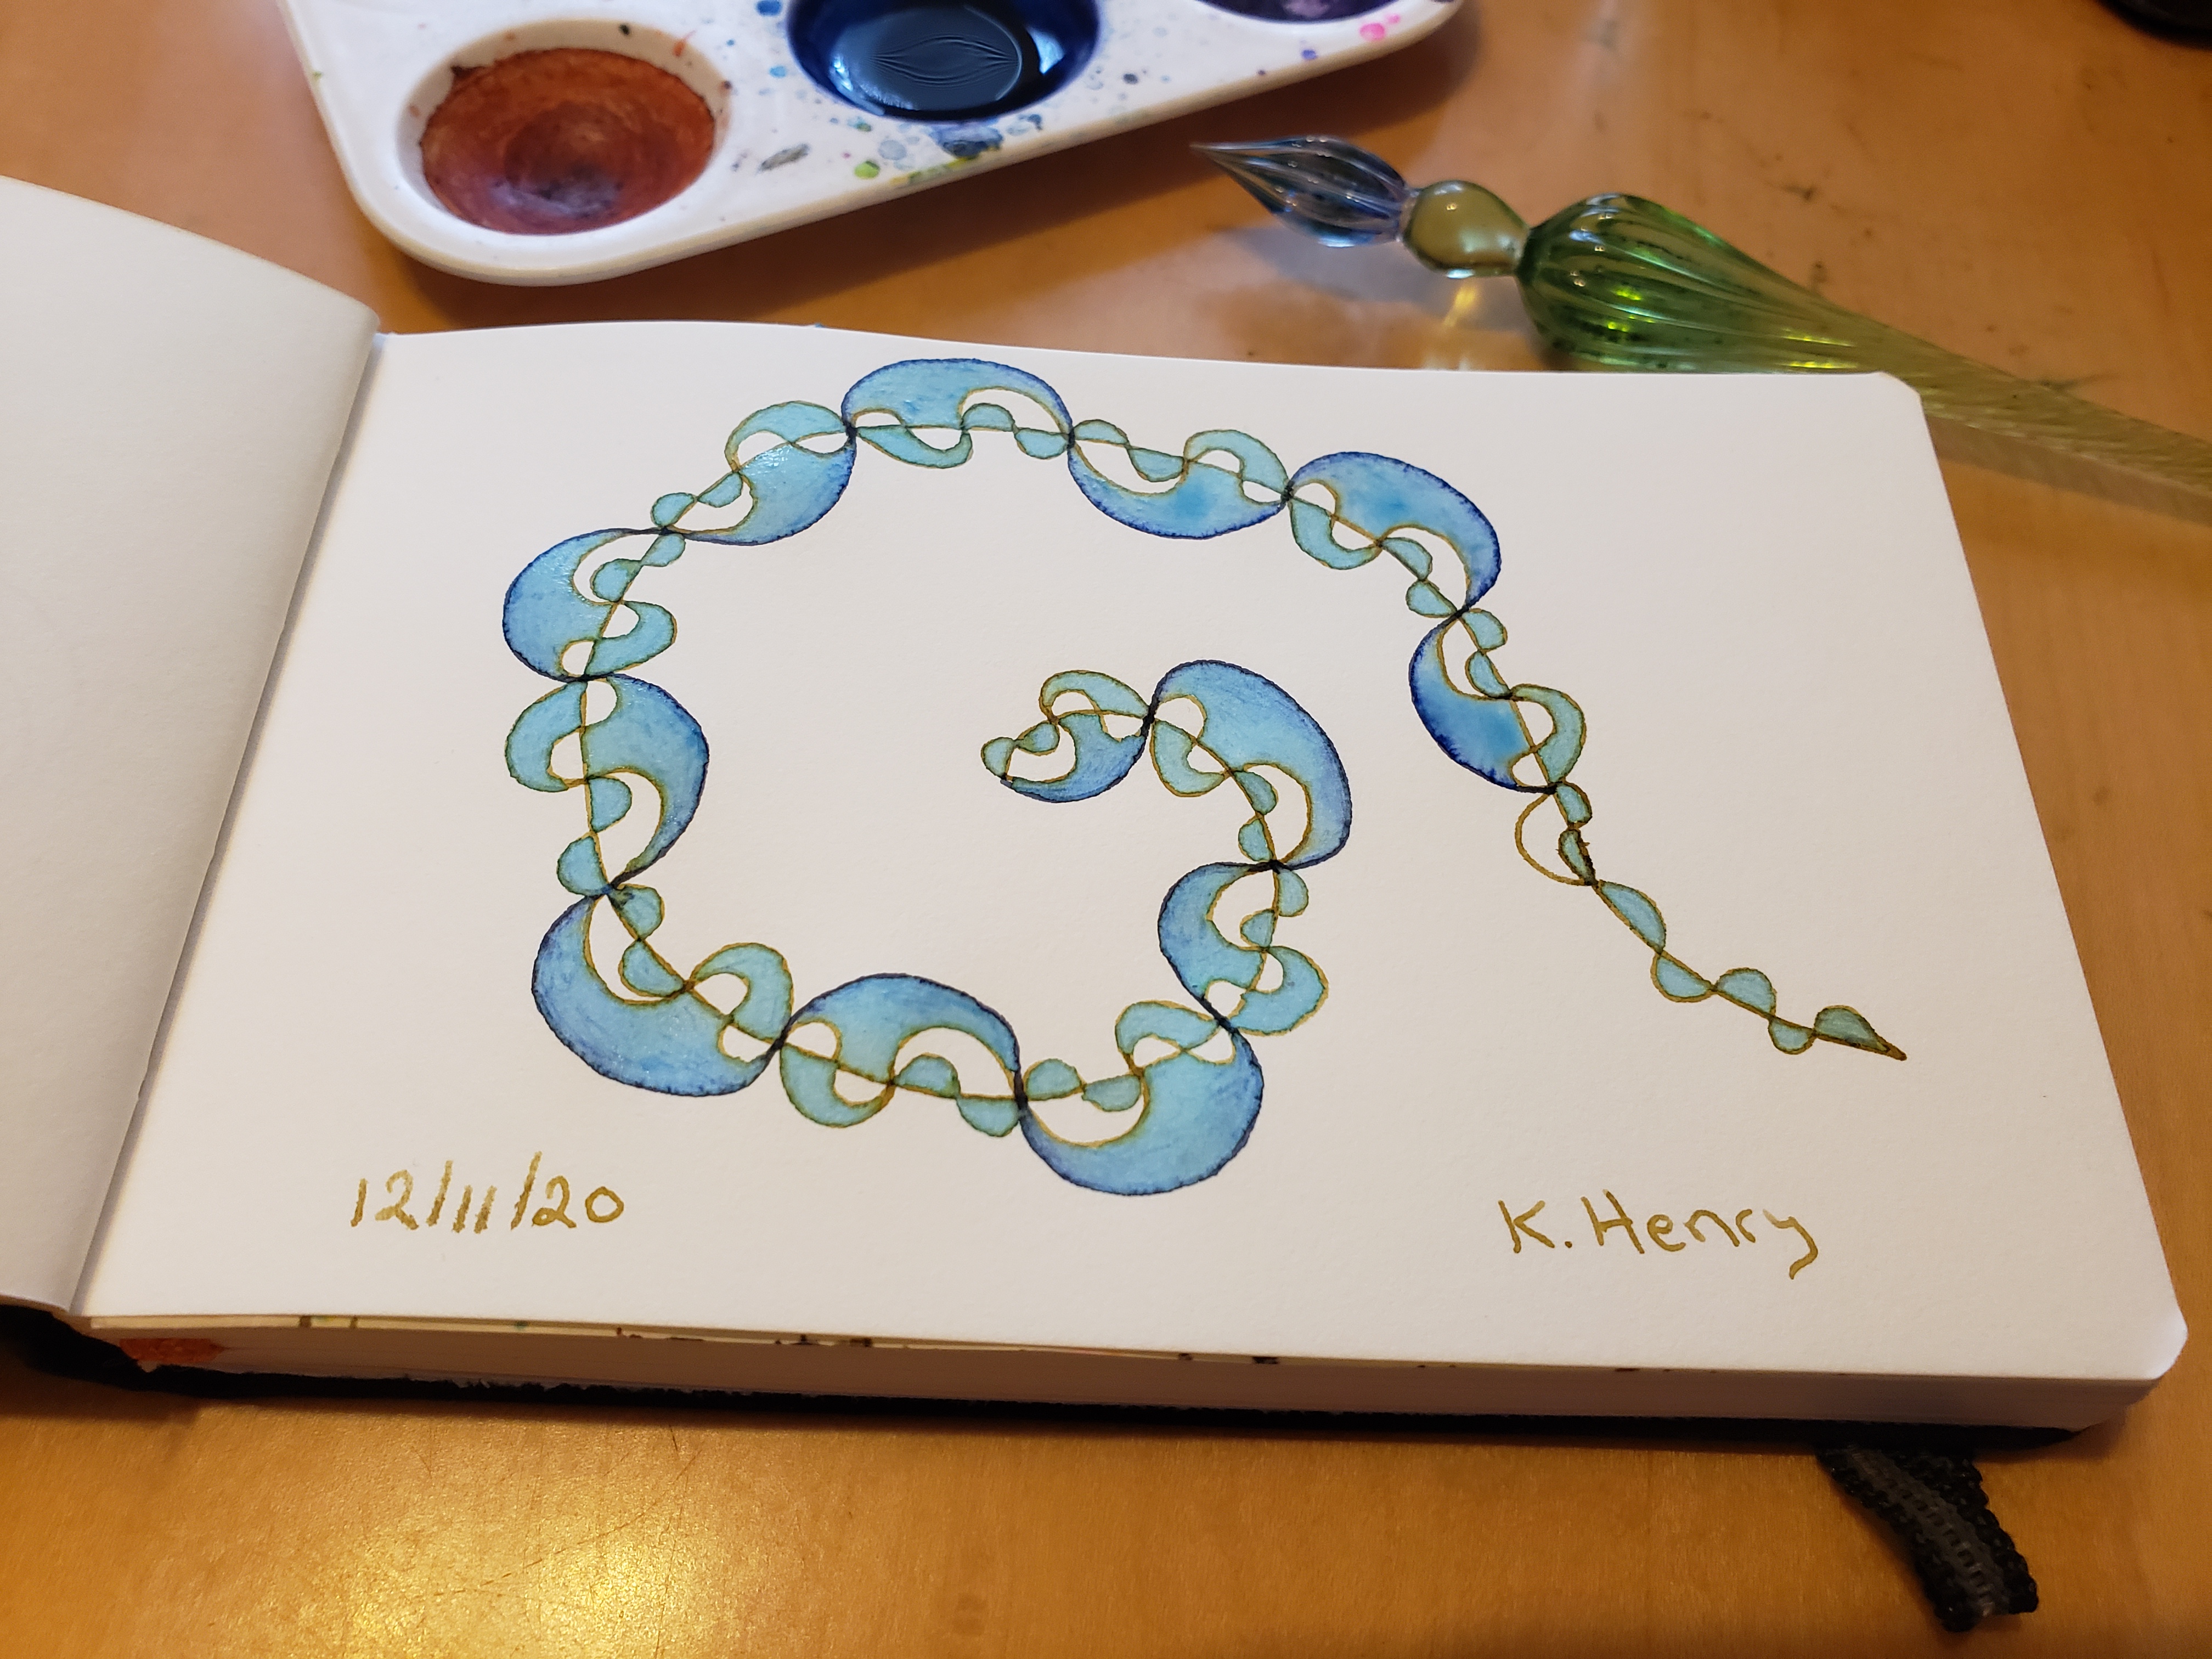 12/11/20
K. Henry